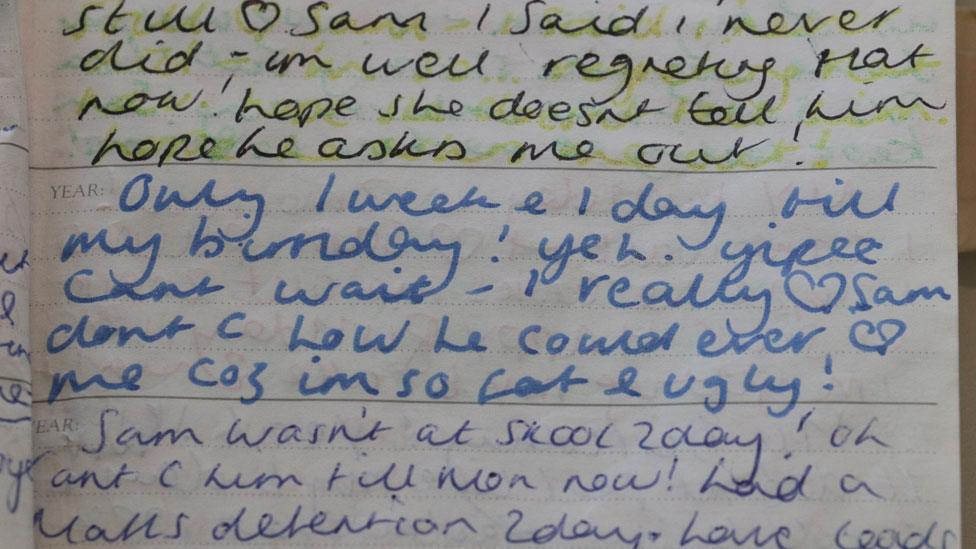 still ♡ Sam I said I never
did - im well regreting that
now! hope she doesnt tell him
hope he asks me out!
YEAR: Only 1 week & 1 day till
my birthday! yeh. yipee
Cant wait - I really ♡ Sam
dont C how he could ever ♡
me coz im so fat & ugly!
EAR: Sam wasn't at skool 2day! oh
ant C him till mon now! had a
Maths detention 2day. have loads